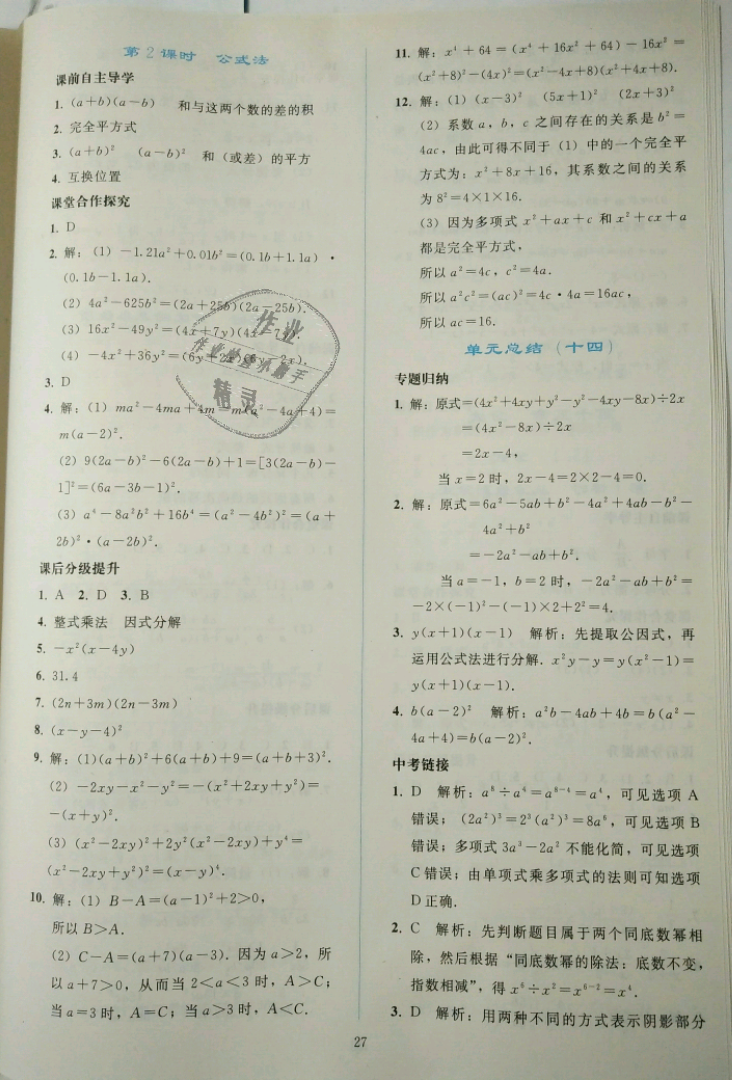 第2课时 公式法
课前自主导学
1. (a+b)(a-b) 和与这两个数的差的积
2. 完全平方式
3. (a+b)² (a-b)² 和(或差)的平方
4. 互换位置
课堂合作探究
1. D
2. 解:(1) -1.21a²+0.01b²=(0.1b+1.1a)·
(0.1b-1.1a).
(2) 4a²-625b²=(2a+25b)(2a-25b).
(3) 16x²-49y²=(4x+7y)(4x-7y).
(4) -4x²+36y²=(6y+2x)(6y-2x).
3. D
4. 解:(1) ma²-4ma+4m=m(a²-4a+4)=
m(a-2)².
(2) 9(2a-b)²-6(2a-b)+1=[3(2a-b)-
1]²=(6a-3b-1)².
(3) a⁴-8a²b²+16b⁴=(a²-4b²)²=(a+
2b)²·(a-2b)².
课后分级提升
1. A 2. D 3. B
4. 整式乘法 因式分解
5. -x²(x-4y)
6. 31.4
7. (2n+3m)(2n-3m)
8. (x-y-4)²
9. 解:(1)(a+b)²+6(a+b)+9=(a+b+3)².
(2) -2xy-x²-y²=-(x²+2xy+y²)=
-(x+y)².
(3) (x²-2xy)²+2y²(x²-2xy)+y⁴=
(x²-2xy+y²)²=(x-y)⁴.
10. 解:(1) B-A=(a-1)²+2>0,
所以B>A.
(2) C-A=(a+7)(a-3). 因为a>2,所
以a+7>0,从而当2<a<3时,A>C;
当a=3时,A=C;当a>3时,A<C.
11. 解:x⁴+64=(x⁴+16x²+64)-16x²=
(x²+8)²-(4x)²=(x²-4x+8)(x²+4x+8).
12. 解:(1) (x-3)² (5x+1)² (2x+3)²
(2) 系数a,b,c之间存在的关系是b²=
4ac,由此可得不同于(1)中的一个完全平
方式为:x²+8x+16,其系数之间的关系
为8²=4×1×16.
(3) 因为多项式x²+ax+c和x²+cx+a
都是完全平方式,
所以a²=4c,c²=4a.
所以a²c²=(ac)²=4c·4a=16ac,
所以ac=16.
单元总结(十四)
专题归纳
1. 解:原式=(4x²+4xy+y²-y²-4xy-8x)÷2x
=(4x²-8x)÷2x
=2x-4,
当x=2时,2x-4=2×2-4=0.
2. 解:原式=6a²-5ab+b²-4a²+4ab-b²-
4a²+b²
=-2a²-ab+b².
当a=-1,b=2时,-2a²-ab+b²=
-2×(-1)²-(-1)×2+2²=4.
3. y(x+1)(x-1) 解析:先提取公因式,再
运用公式法进行分解. x²y-y=y(x²-1)=
y(x+1)(x-1).
4. b(a-2)² 解析:a²b-4ab+4b=b(a²-
4a+4)=b(a-2)².
中考链接
1. D 解析:a⁸÷a⁴=a⁸⁻⁴=a⁴,可见选项A
错误;(2a²)³=2³(a²)³=8a⁶,可见选项B
错误;多项式3a³-2a²不能化简,可见选项
C错误;由单项式乘多项式的法则可知选项
D正确.
2. C 解析:先判断题目属于两个同底数幂相
除,然后根据“同底数幂的除法:底数不变,
指数相减”,得x⁶÷x²=x⁶⁻²=x⁴.
3. D 解析:用两种不同的方式表示阴影部分
27
作业
精灵